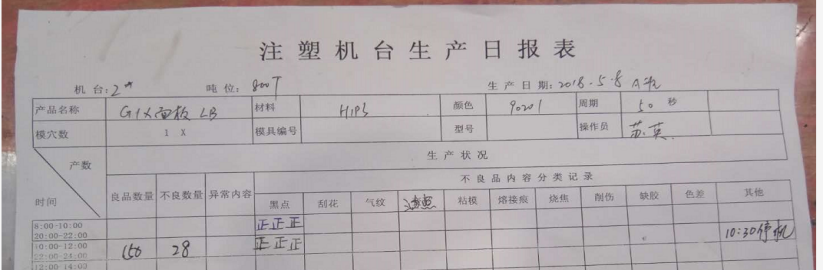 注塑机台生产日报表
机台: 2# 吨位: 800T 生产日期: 2018-5-8 A班
产品名称 G1X面板 LB 材料 HIPS 颜色 90201 周期 50 秒
模穴数 1 X 模具编号 型号 操作员 苏英
产数 生产状况
时间 良品数量 不良数量 异常内容 不良品内容分类记录
黑点 刮花 气纹 粘模 熔接痕 烧焦 削伤 缺胶 色差 其他
8:00-10:00 正正正
20:00-22:00
10:00-12:00 150 28 正正正 10:30停机
22:00-24:00
12:00-14:00